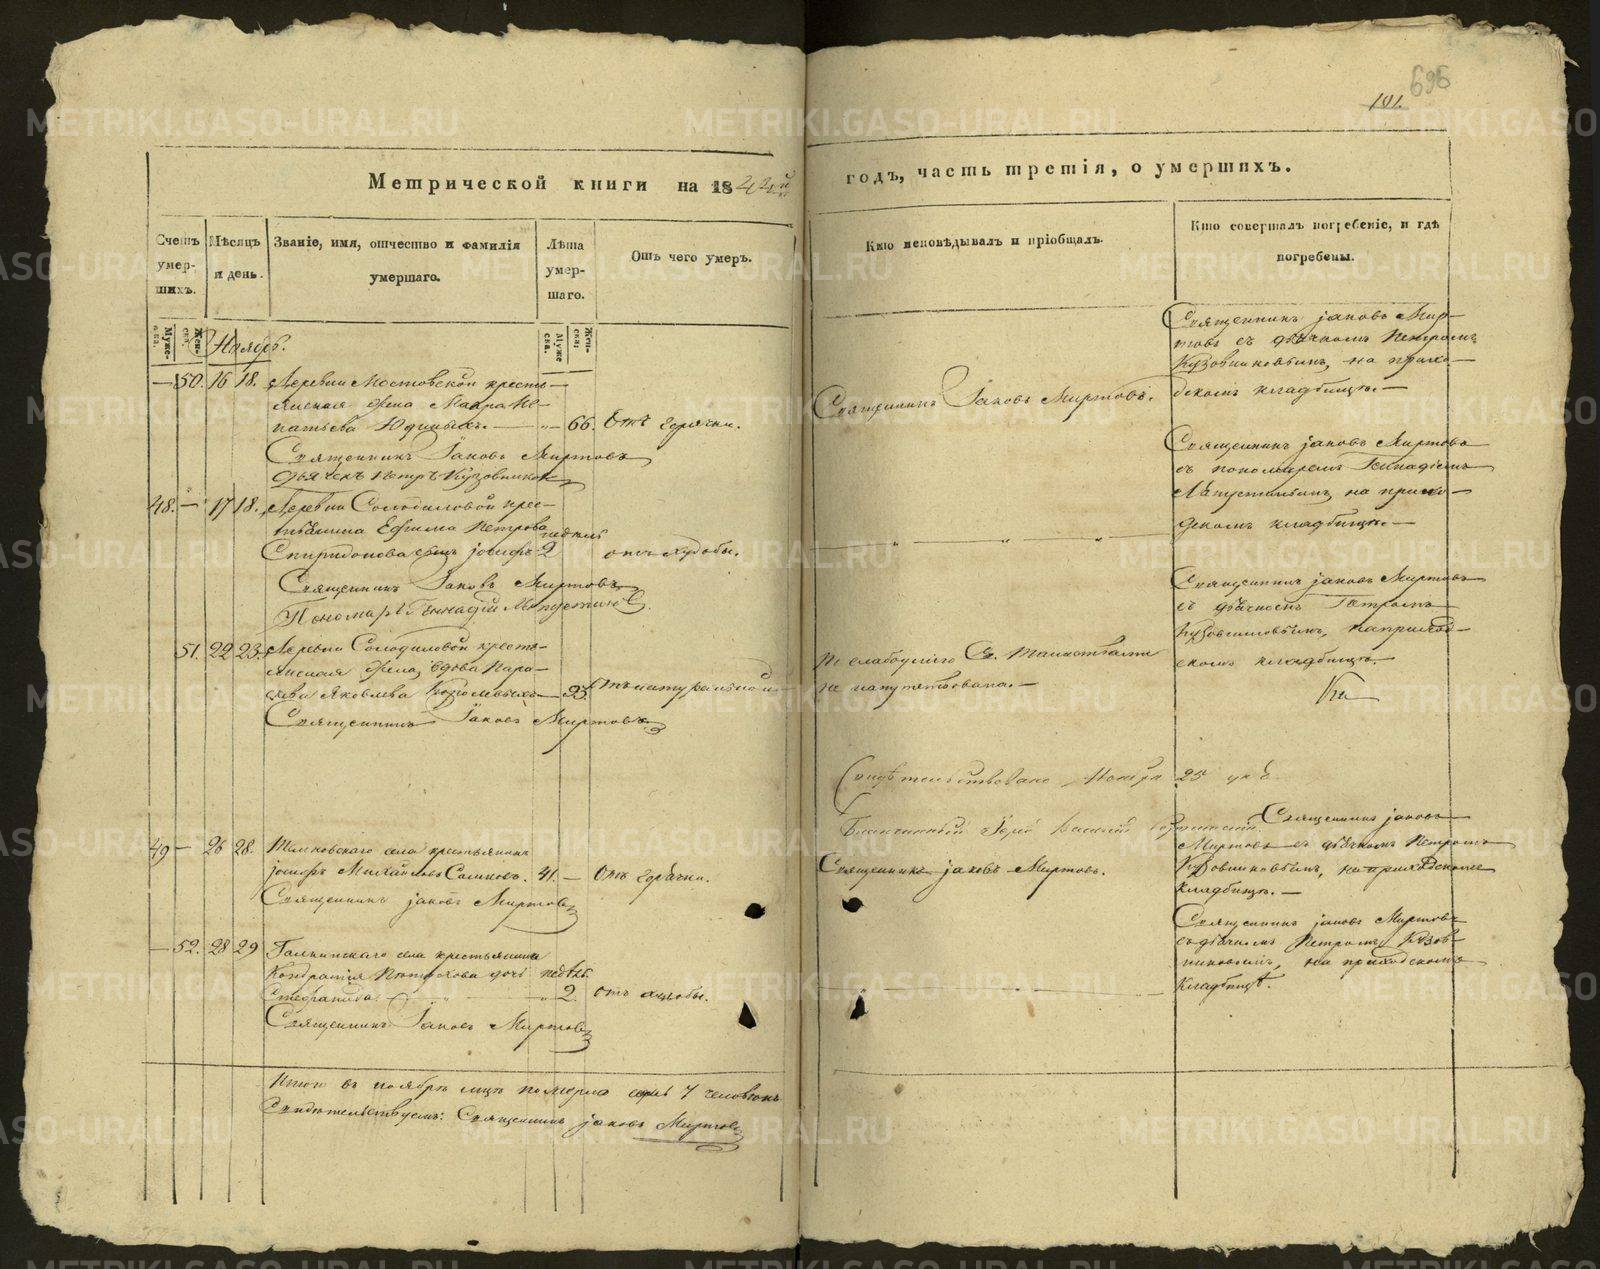 696
101.
Метрической книги на 1842й
годъ, часть третія, о умершихъ.
Счетъ умер- шихъ.
Мѣсяцъ и день.
Званіе, имя, отчество и фамилія умершаго.
Лѣта умер- шаго.
Отъ чего умеръ.
Кто исповѣдывалъ и пріобщалъ.
Кто совершалъ погребеніе, и гдѣ погребены.
Ноябрь.
— 50. 16 18. Деревни Мостовской кресть-
янская жена Мавра Иг-
натьева Юдиныхъ. — „ — 66. Отъ горячки.
Священникъ Іаковъ Миртовъ
Дьячекъ Петръ Кузовниковъ
Священникъ Іаковъ Миртовъ.
Священникъ Іаковъ Мир-
товъ съ дьячкомъ Петромъ
Кузовниковымъ, на прихо-
дскомъ кладбищѣ. —
48. — 17 18. Деревни Солодиловой крес-
тьянина Ефима Петрова недѣль
Спиридонова сынъ Іосифъ 2
Священникъ Іаковъ Миртовъ
Пономарь Геннадій
Священникъ Іаковъ Миртовъ
съ пономаремъ Геннадіемъ
на прихо-
дскомъ кладбищѣ. —
51. 22 23. Деревни Солодиловой кресть-
янская жена, вдова Пара-
скева Яковлева — 93. Отъ натуральной
Священникъ Іаковъ Миртовъ
По слабости Св. Таинствами
не напутствована. —
Священникъ Іаковъ Миртовъ
съ дьячкомъ Петромъ
Кузовниковымъ, на приход-
скомъ кладбищѣ. —
Свидѣтельствовано Ноября 25 дня
Благочинный Іерей Василій
49 — 26 28. села крестьянинъ
Іосифъ Михайловъ 41. — Отъ горячки.
Священникъ Іаковъ Миртовъ
Священникъ Іаковъ Миртовъ.
Священникъ Іаковъ
Миртовъ съ дьячкомъ Петромъ
Кузовниковымъ, на приходскомъ
кладбищѣ. —
— 52. 28 29 Галкинскаго села крестьянина
Кондратія дочь недѣль
Стефанида. „ 2. отъ
Священникъ Іаковъ Миртовъ
Священникъ Іаковъ Миртовъ
съ дьячкомъ Петромъ Кузов-
никовымъ, на приходскомъ
кладбищѣ.
Итого въ ноябрѣ мцѣ померло 7 человѣкъ
Свидѣтельствуемъ: Священникъ Іаковъ Миртовъ
METRIKI.GASO-URAL.RU